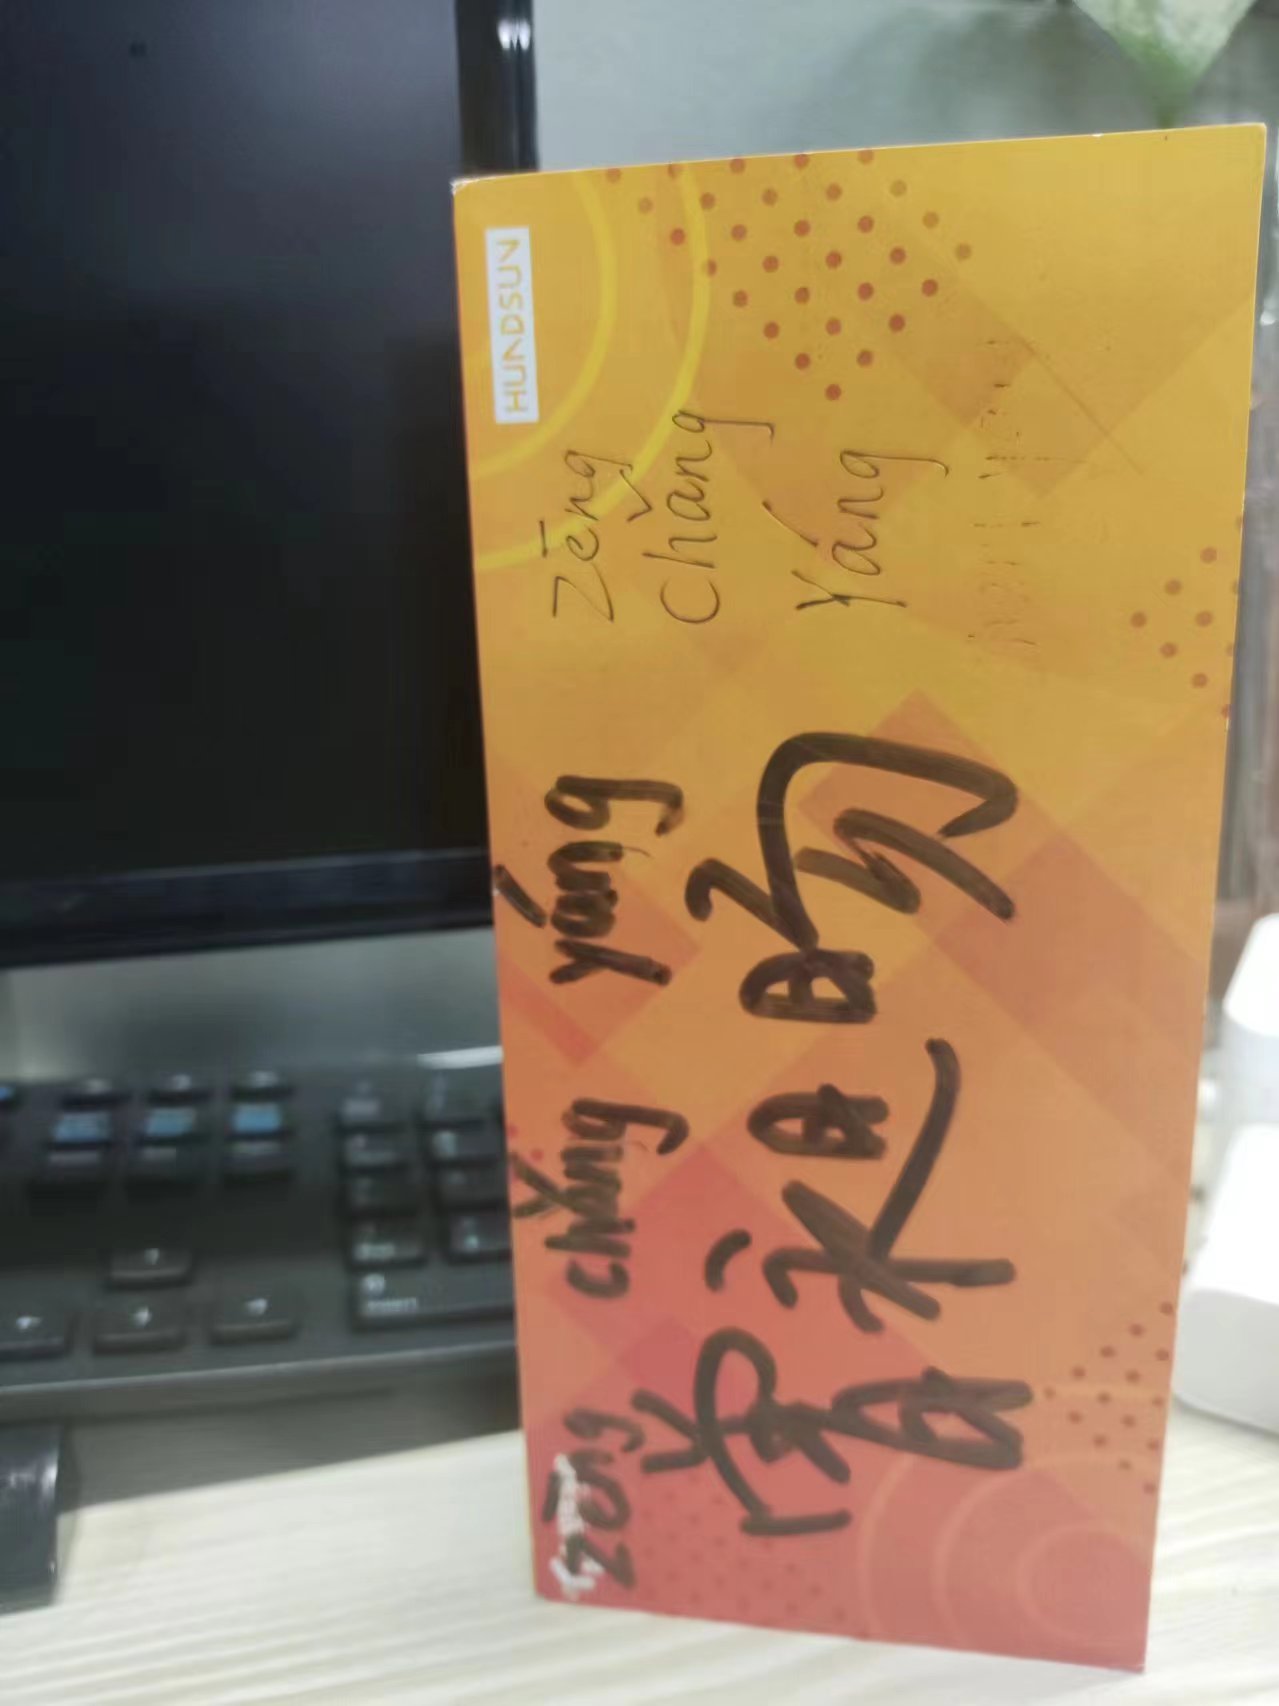 HUNDSUN
zēng chǎng yáng
曾昶旸
Zēng
Chǎng
Yáng